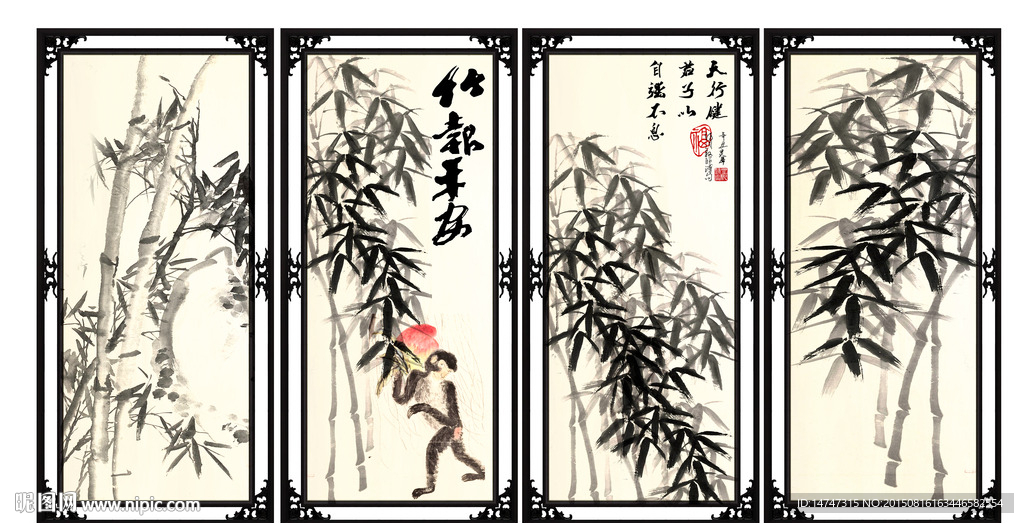 竹報平安
天行健
君子以
自強不息
福
昵图网 www.nipic.com
ID:14747315 NO:20150816163446582554